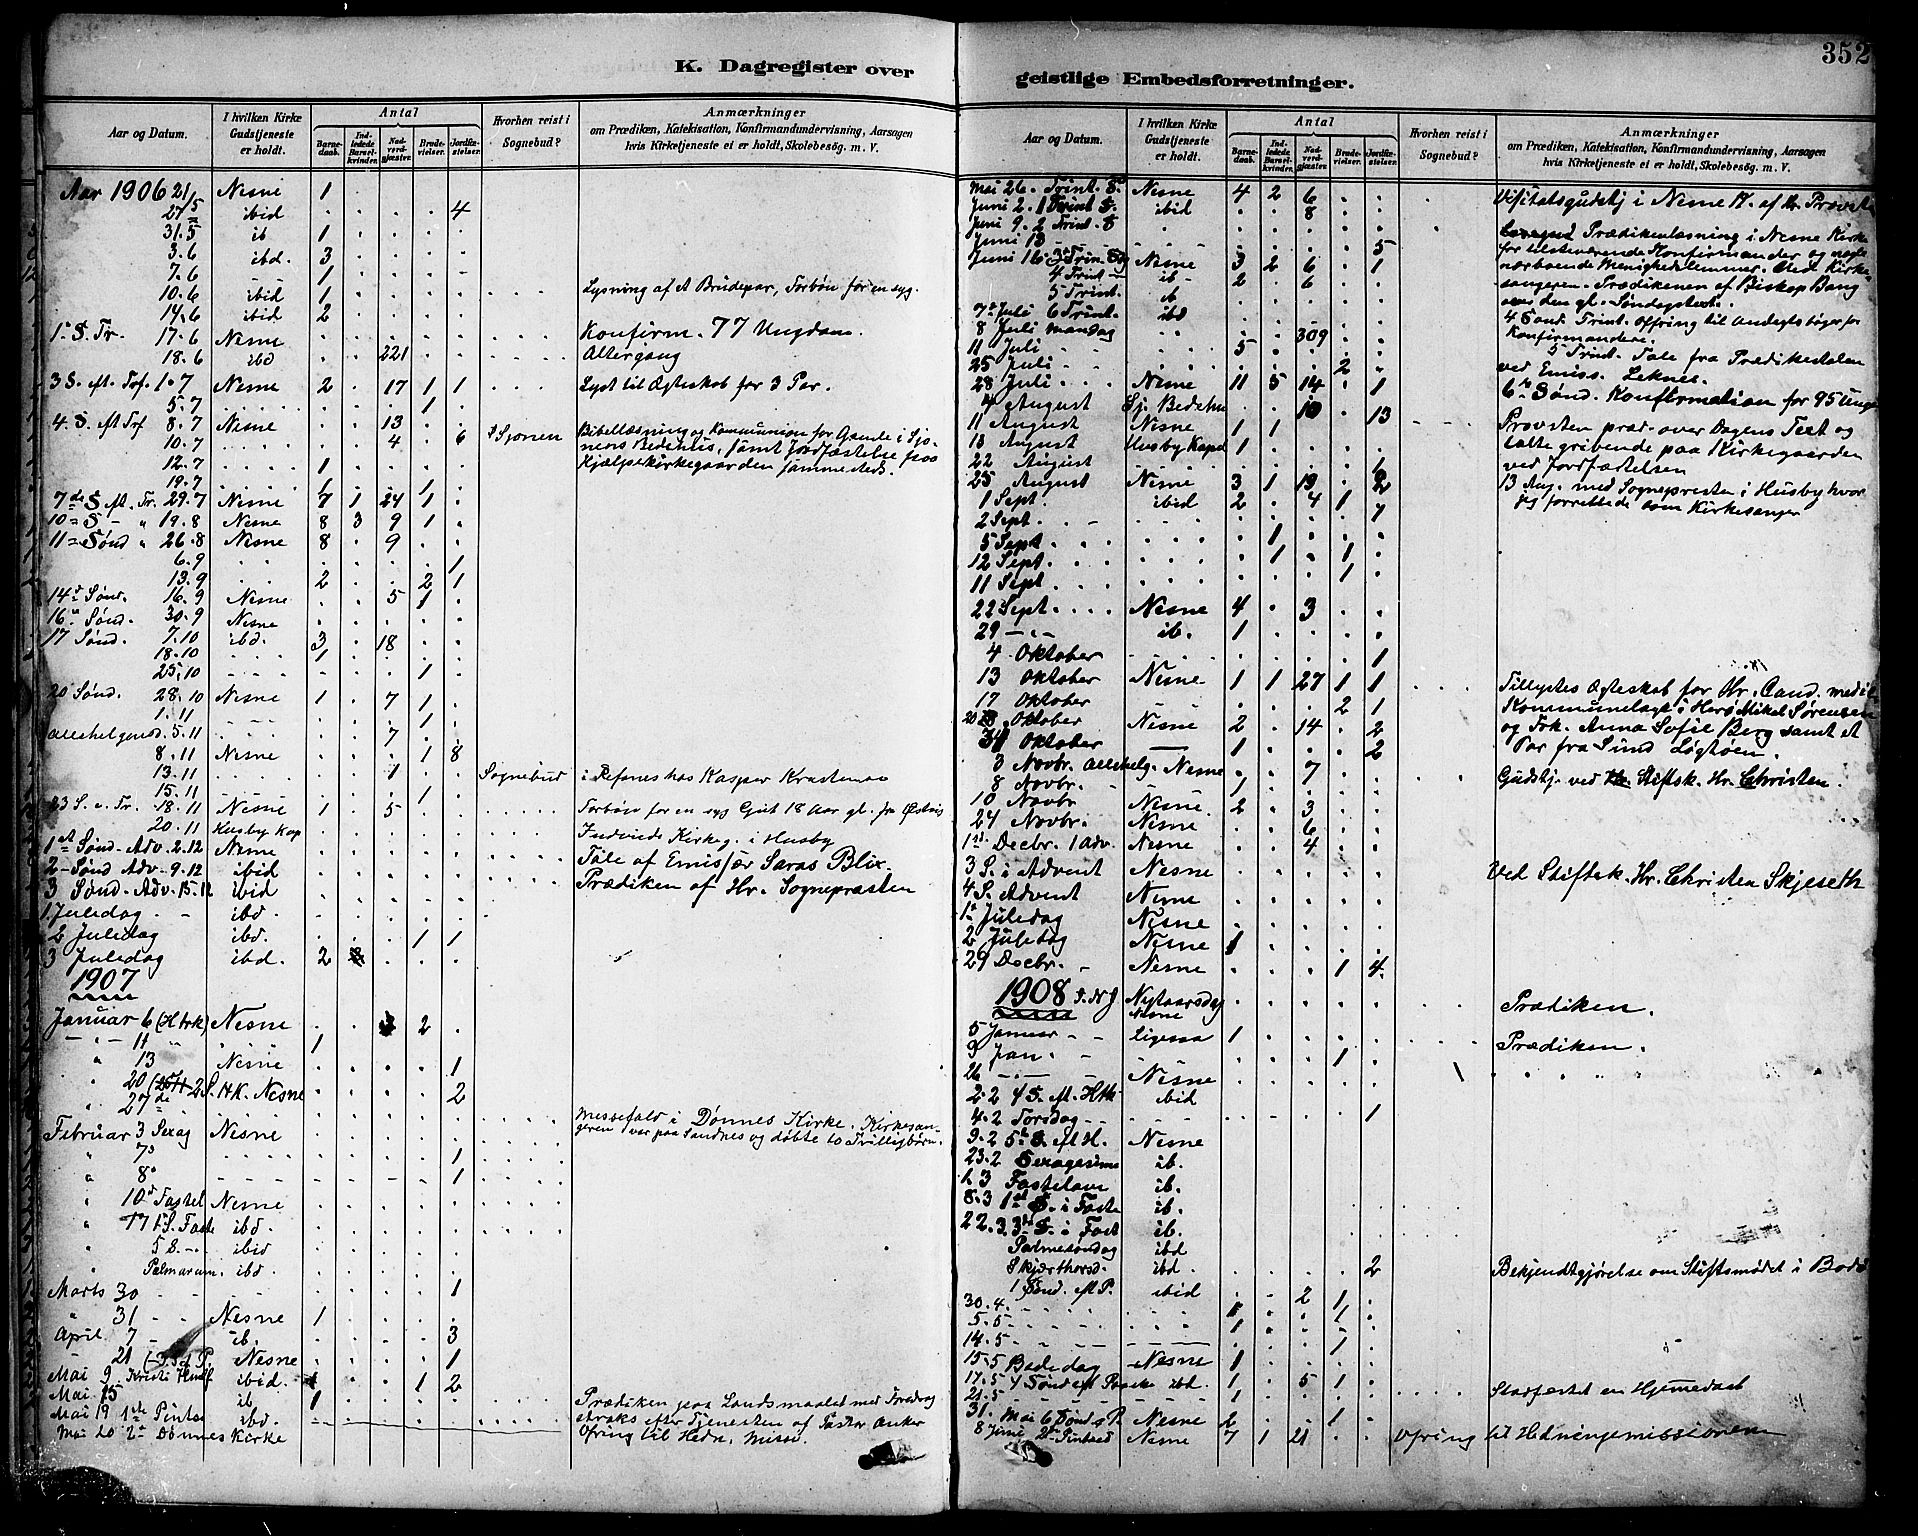 352
K. Dagregister over geistlige Embedsforretninger.
Aar og Datum.
I hvilken Kirke Gudstjeneste er holdt.
Antal
Barnedaab.
Indledede Barselkvinder.
Nadverdgjæster.
Brudevielser.
Jordfæstelser.
Hvorhen reist i Sognebud?
Anmærkninger
om Prædiken, Katekisation, Konfirmandundervisning, Aarsagen
hvis Kirketjeneste ei er holdt, Skolebesøg. m. V.
Aar 1906 21/5 Nesne 1
27/5 ibid 4
31.5 ib 1
3.6 ibd. 3
7.6 1
10.6 ibid 1 Lysning af et Brudepar, Forbøn for en syg.
14.6 ibid 2
1ste S. Tr. 17.6 Nesne Konfirm. 77 Ungdom.
18.6 ibd 221 Altergang
3 S. eft. Tref. 1.7 Nesne 2 17 1 1 Lyst til Ægteskab for 3 Par.
5.7 1
4. S. eft Tref 8.7 Nesne 13
10.7 4 6 Sjonen Bibellæsning og Kommunion for Gamle i Sjonens Bedehus, samt Jordfæstelse paa
12.7 1 Hjælpekirkegaarden sammesteds.
19.7 1 1
7de S eft. Tr. 29.7 Nesne 7 1 24 1
10 S - " 19.8 Nesne 8 3 9 1
11 Sønd " 26.8 Nesne 8 9
6.9 1
13.9 2 2 1
14d Sønd. 16.9 Nesne 5 1
16 Sønd. 30.9 Nesne
17 Sønd. 7.10 ibd. 3 18
18.10 1
25.10 1
20 Sønd. 28.10 Nesne 1 7 1
1.11 1
Allehelgensd. 5.11 7
8.11 Nesne 1 8
13.11 1 Sognebud
15.11 1
23 S. e. Tr. 18.11 Nesne 1 5 Forbøn for en syg Gut 18 Aar gl.
20.11 Husby Kap Indviede Kirkeg. i Husby
1st Sønd. Adv. 2.12 Nesne
2 Sønd Adv. 9.12 ibid Tale af Emissær Saras Blix.
3 Sønd. Adv. 15.12 ibid Prædiken af Hr. Sognepræsten
1 Juledag ibd
2 Juledag ibd. 1 1
3 Juledag ibd. 2
1907
Januar 6 Nesne 3 2
" 11 1
" 13 Nesne 1
" 20 2 S. H.K. Nesne
" 27de 2
Februar 3 Sexag Nesne Messefald i Dønnes Kirke. Kirkesangeren var paa Sandnes og døbte to Trillingbørn.
" 7 1
" 8 1
" 10d Fastel Nesne
" 17 1 S. Faste ibd.
" 5 S. ibid
Palmarum. ibd.
Marts 30 1
" 31 Nesne 1
April 7 ib. 3
21 Nesne 1
Mai 9 Kristi Himf ibid. 1 2
Mai 15 ib 1 Prædiken paa Landsmaalet med Foredrag
Mai 19 1ste Pintse ibd. straks efter Tjenesten af Pastor Anker
Mai 20 2 Dønnes Kirke Ofring til Hedn. Miss.
Aar og Datum.
I hvilken Kirke Gudstjeneste er holdt.
Antal
Barnedaab.
Indledede Barselkvinder.
Nadverdgjæster.
Brudevielser.
Jordfæstelser.
Hvorhen reist i Sognebud?
Anmærkninger
om Prædiken, Katekisation, Konfirmandundervisning, Aarsagen
hvis Kirketjeneste ei er holdt, Skolebesøg. m. V.
Mai 26. Trint. S. Nesne 4 2 6 Visitatsgudstj i Nesne 17. af Hr. Provst
Juni 2. 1 Trint S. ibid 8
Juni 9. 2 Trint. S Prædikenlæsning i Nesne Kirke
Juni 13 5 for tilstuerende Konfirmander og nogle
Juni 16. 3 Trin. Nesne 3 2 6 1 nærboende Menighedslemmer. Ved Kirke-
4 Trint ib 2 6 sangeren. Prædikenen af Biskop Bang
5 Trint. ib over den gl. Søndagstext.
7 Juli 6 Trint. ibd 4 Sønd. Trint. Ofring til Andagtsbøger for
8 Juli mandag 309 Konfirmandere.
11 Juli 5 5 Trint. Tale fra Prædikestolen
25 Juli 2 ved Emiss. Leknes.
28 Juli Nesne 11 5 14 1 6te Sønd. Konfirmation for 95 Unge
4 August Sj. Bedehu 10 13
11 August Nesne 1 1 Provsten præd. over Dagens Text og
13 August Husby Kapel 1 talte gribende paa Kirkegaarden
22 August 1 ved Jordfæstelsen
25 August Nesne 3 1 19 2 13 Aug. med Sognepresten i Husby hvor
1 Sept. ibid 2 4 1 jeg forrettede som Kirkesanger
2 Sept. 7
5 Sept 1
12 Sept. 1 1
11 Sept 1
22 Sept Nesne 4 3
29 ib. 1
4 Oktober 1
13 Oktober Nesne 1 1 27 1 1 Tillystes Ægteskab for Hr. Cand. med &
17 Oktober 2 1 Kommunelæge i Herø Mikal Sørensen
20 Oktober Nesne 2 14 2 og Frk. Anna Sofie Berg samt et
31 Oktober 1 2 Par fra Sund Løgtøen.
3 Novbr. Allehelg. Nesne 7 Gudstj. ved Stiftsk. Hr. Christen.
8 Novbr. 1
10 Novbr Nesne 2 3
24 Novbr. Nesne 6
1st Decbr. 1 Adv. Nesne 4
3 S. i Advent Nesne Ved Stiftsk. Hr. Christen Skjeseth
4 S. Advent Nesne
1 Juledag Nesne
2 Juledag Nesne 1
29 Decbr. Nesne 1 4
1908 Nytaarsdag Nesne Prædiken.
5 Januar Ligesaa 1 Prædiken.
9 Jan. 1
26 Nesne
2.2 4 S. ef. Hth. ibid
4.2 Torsdag 1
9.2 5 S. eft H. Nesne
23.2 Sexagesima ib.
1 3 Fastelavn ib.
8.3 1ste S. i Faste ib.
22.3. 3de S. i Fast ib.
Palmesøndag ibd
Skjærthorsd. ibd. 2 Bekjendtgjørelse om Stiftsmødet i Bodø
1 Sønd. eft P. ibid 2 1
30.4. 1 1
5.5 1
14.5 1
15.5 Bededag Nesne 1
17.5 4 Sønd eft Paaske ibd. 1 5 1 Stadfæstet en Hjemmedaab
21.5 1
31. Mai 6 Sønd e P. Nesne 2 1
8 Juni 2 Pintsed Nesne 7 1 21 Ofring til Hedningemissionen